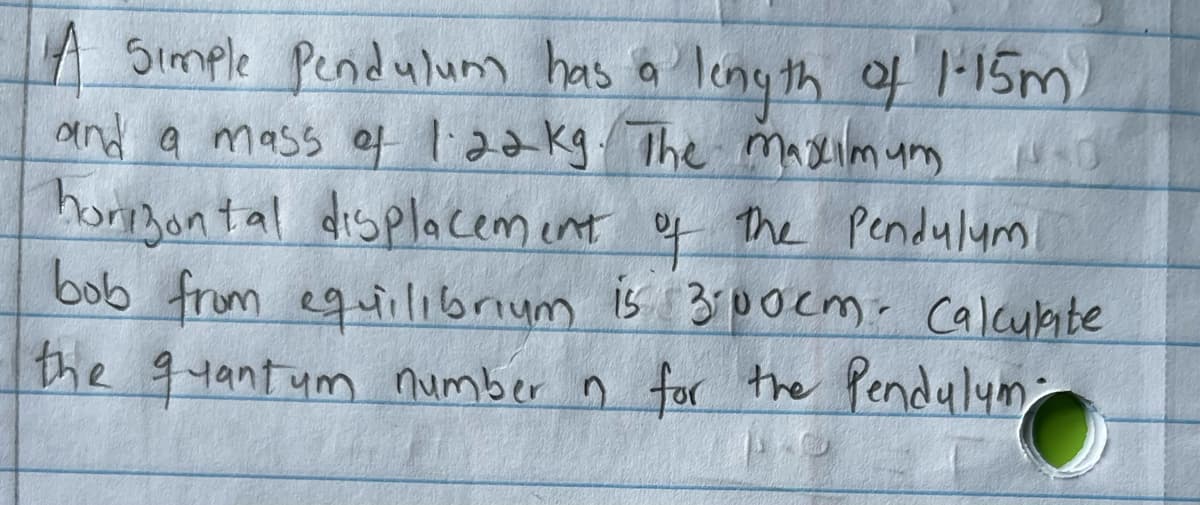 A Simple Pendulum has a length of 1.15m
and a mass of 1.22kg. The maximum
horizontal displacement of the Pendulum
bob from equilibrium is 3.00cm. Calculate
the quantum number n for the Pendulum.